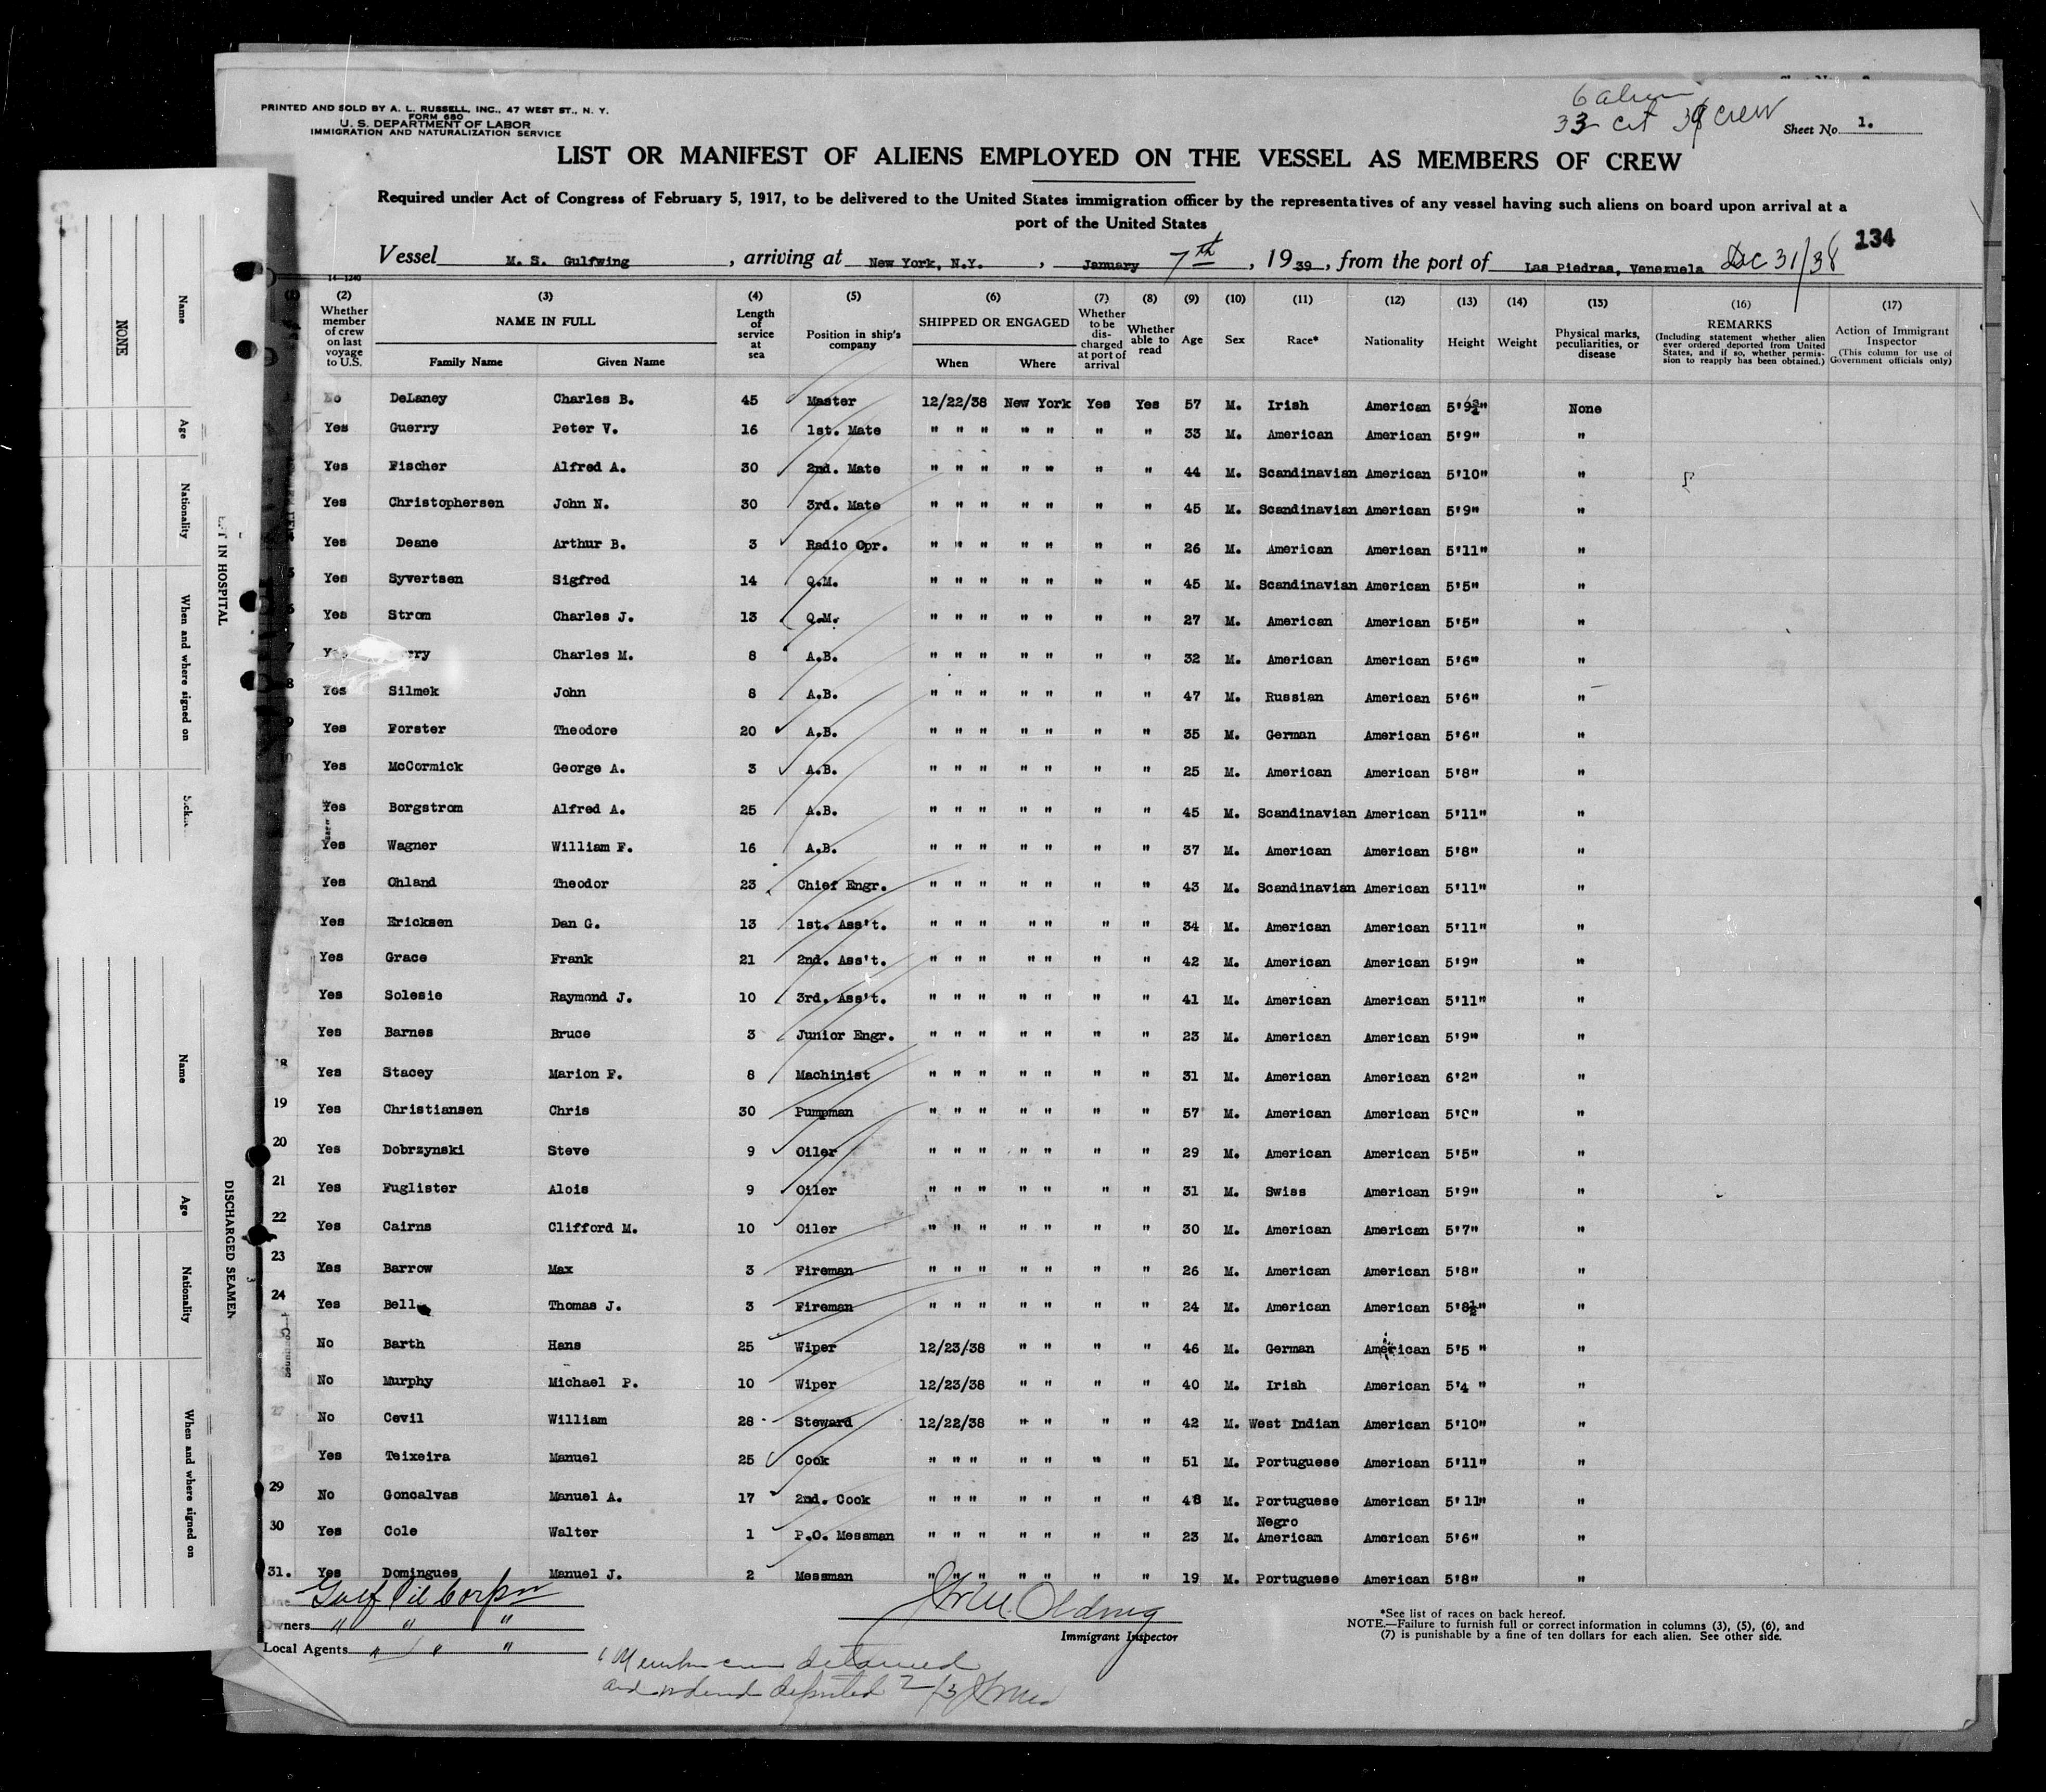 6
33 cit 39 crew
PRINTED AND SOLD BY A. L. RUSSELL, INC., 47 WEST ST., N. Y.
FORM 680
U. S. DEPARTMENT OF LABOR
IMMIGRATION AND NATURALIZATION SERVICE
Sheet No. 1.
LIST OR MANIFEST OF ALIENS EMPLOYED ON THE VESSEL AS MEMBERS OF CREW
Required under Act of Congress of February 5, 1917, to be delivered to the United States immigration officer by the representatives of any vessel having such aliens on board upon arrival at a
port of the United States
134
Vessel M. S. Gulfwing, arriving at New York, N.Y., January 7th, 1939, from the port of Las Piedras, Venezuela Dec 31/38
14-1240
(2) Whether member of crew on last voyage to U.S.
(3) NAME IN FULL Family Name Given Name
(4) Length of service at sea
(5) Position in ship's company
(6) SHIPPED OR ENGAGED When Where
(7) Whether to be discharged at port of arrival
(8) Whether able to read
(9) Age
(10) Sex
(11) Race*
(12) Nationality
(13) Height
(14) Weight
(15) Physical marks, peculiarities, or disease
(16) REMARKS (Including statement whether alien ever ordered deported from United States, and if so, whether permission to reapply has been obtained.)
(17) Action of Immigrant Inspector (This column for use of Government officials only)
No DeLaney Charles B. 45 Master 12/22/38 New York Yes Yes 57 M. Irish American 5'9¾" None
Yes Guerry Peter V. 16 1st. Mate " " " " " " " 33 M. American American 5'9" "
Yes Fischer Alfred A. 30 2nd. Mate " " " " " " " 44 M. Scandinavian American 5'10" "
Yes Christophersen John N. 30 3rd. Mate " " " " " " " 45 M. Scandinavian American 5'9" "
Yes Deane Arthur B. 3 Radio Opr. " " " " " " " 26 M. American American 5'11" "
5 Yes Syvertsen Sigfred 14 Q.M. " " " " " " " 45 M. Scandinavian American 5'5" "
6 Yes Strom Charles J. 13 Q.M. " " " " " " " 27 M. American American 5'5" "
7 Charles M. 8 A.B. " " " " " " " 32 M. American American 5'6" "
8 Yes Silmek John 8 A.B. " " " " " " " 47 M. Russian American 5'6" "
9 Yes Forster Theodore 20 A.B. " " " " " " " 35 M. German American 5'6" "
Yes McCormick George A. 3 A.B. " " " " " " " 25 M. American American 5'8" "
Yes Borgstrom Alfred A. 25 A.B. " " " " " " " 45 M. Scandinavian American 5'11" "
Yes Wagner William F. 16 A.B. " " " " " " " 37 M. American American 5'8" "
Yes Ohland Theodor 23 Chief Engr. " " " " " " " 43 M. Scandinavian American 5'11" "
Yes Ericksen Dan G. 13 1st. Ass't. " " " " " " " 34 M. American American 5'11" "
Yes Grace Frank 21 2nd. Ass't. " " " " " " " 42 M. American American 5'9" "
Yes Solesie Raymond J. 10 3rd. Ass't. " " " " " " " 41 M. American American 5'11" "
Yes Barnes Bruce 3 Junior Engr. " " " " " " " 23 M. American American 5'9" "
18 Yes Stacey Marion F. 8 Machinist " " " " " " " 31 M. American American 6'2" "
19 Yes Christiansen Chris 30 Pumpman " " " " " " " 57 M. American American "
20 Yes Dobrzynski Steve 9 Oiler " " " " " " " 29 M. American American 5'5" "
21 Yes Fuglister Alois 9 Oiler " " " " " " " 31 M. Swiss American 5'9" "
22 Yes Cairns Clifford M. 10 Oiler " " " " " " " 30 M. American American 5'7" "
23 Yes Barrow Max 3 Fireman " " " " " " " 26 M. American American 5'8" "
24 Yes Bell Thomas J. 3 Fireman " " " " " " " 24 M. American American 5'8½" "
No Barth Hans 25 Wiper 12/23/38 " " " " 46 M. German American 5'5 " "
No Murphy Michael P. 10 Wiper 12/23/38 " " " " 40 M. Irish American 5'4 " "
27 No Cevil William 28 Steward 12/22/38 " " " " 42 M. West Indian American 5'10" "
Yes Teixeira Manuel 25 Cook " " " " " " " 51 M. Portuguese American 5'11" "
29 No Goncalvas Manuel A. 17 2nd. Cook " " " " " " " 48 M. Portuguese American 5'11" "
30 Yes Cole Walter 1 P.O. Messman " " " " " " " 23 M. Negro American American 5'6" "
31. Yes Domingues Manuel J. 2 Messman " " " " " " " 19 M. Portuguese American 5'8" "
Line Gulf Oil Corpn
Owners " " "
Local Agents " " "
Immigrant Inspector
*See list of races on back hereof.
NOTE.—Failure to furnish full or correct information in columns (3), (5), (6), and
(7) is punishable by a fine of ten dollars for each alien. See other side.
detained
and ordered deported
NONE
Name
Age
Nationality
When and where signed on
IN HOSPITAL
Name
Age
Nationality
When and where signed on
DISCHARGED SEAMEN